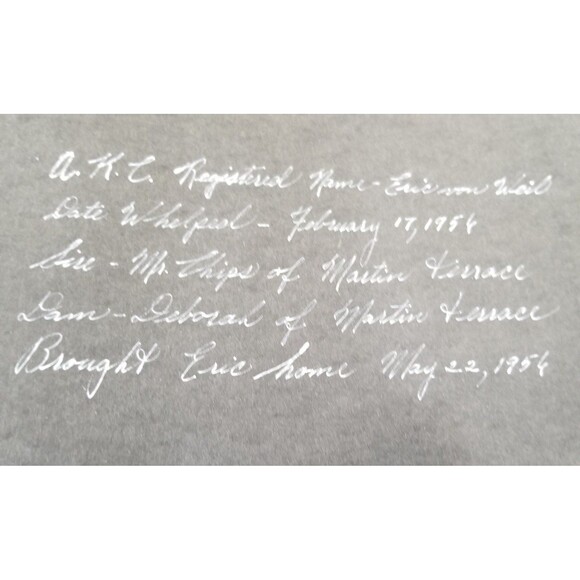 A. K. C. Registered Name - Eric von Weil
Date Whelped - February 17, 1954
Sire - Mr. Chips of Martin Terrace
Dam - Deborah of Martin Terrace
Brought Eric home May 22, 1954